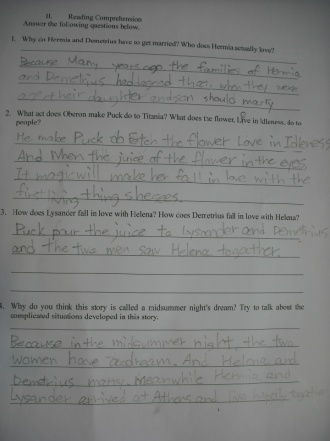 II. Reading Comprehension
Answer the following questions below.
1. Why do Hermia and Demetrius have to get married? Who does Hermia actually love?
Because Many years ago the families of Hermia
and Demetrius had agreed that when they were
their daughter and son should marry
2. What act does Oberon make Puck do to Titania? What does the flower, Live in Idleness, do to
people?
He make Puck do Fetch the flower Love in Idleness
And When the juice of the flower in the eyes
It magic will make her fall in love with the
first living thing she sees.
3. How does Lysander fall in love with Helena? How does Demetrius fall in love with Helena?
Puck pour the juice to Lysander and Demetrius
and the two men saw Helena together
4. Why do you think this story is called a midsummer night's dream? Try to talk about the
complicated situations developed in this story.
Because in the midsummer night, the two
women have a dream. And Helena and
Demetrius marry. Meanwhile Hermia and
Lysander arrived at Athens and live together